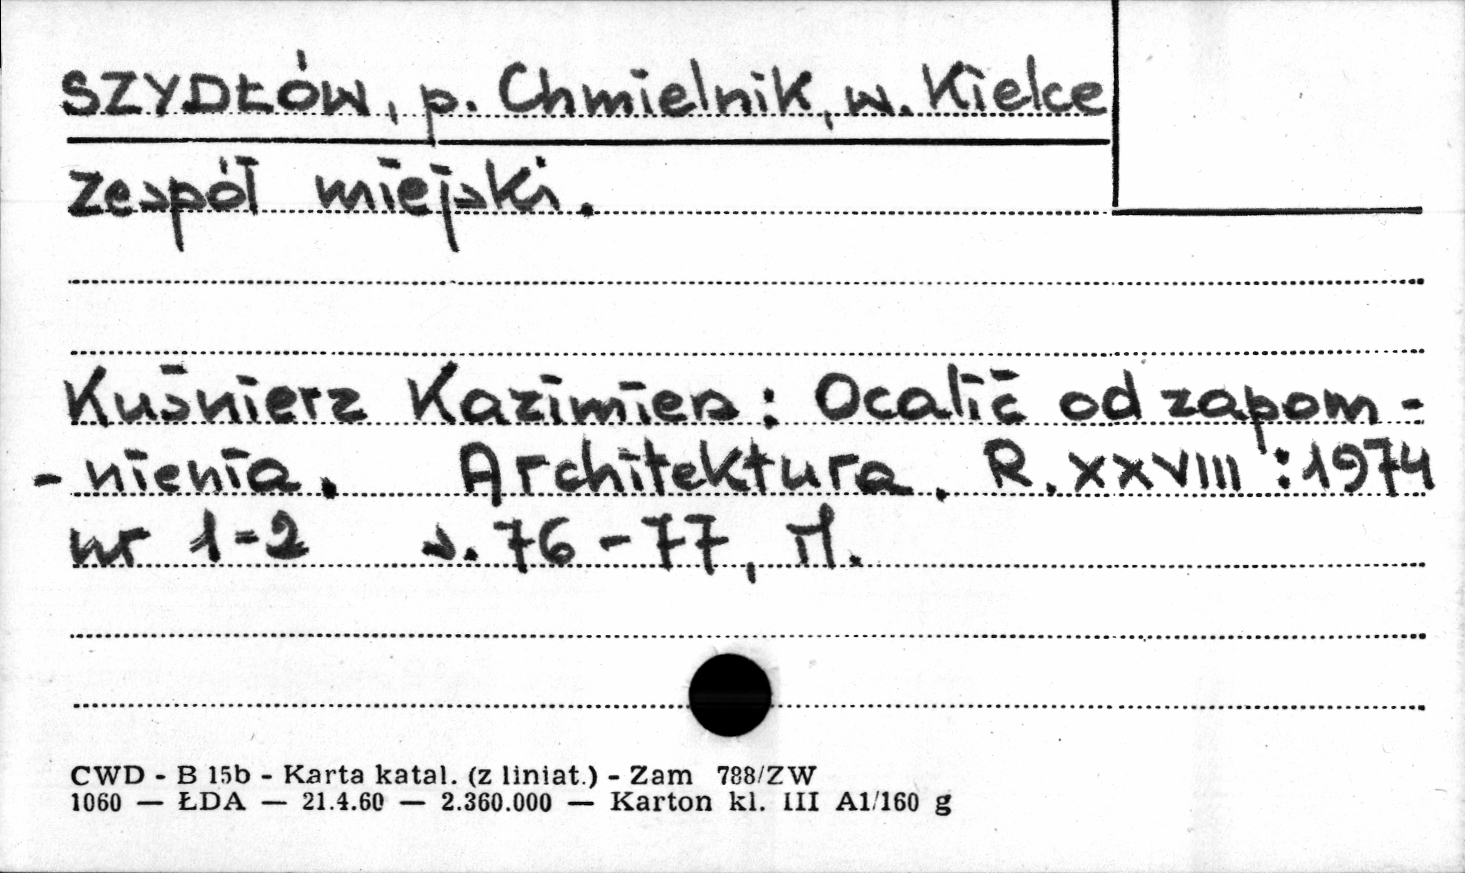 SZYDŁÓW, p. Chmielnik, w. Kielce
Zespół miejski.
Kuśnierz Kazimierz: Ocalić od zapom-
-nienia. Architektura. R. XXVIII: 1974
nr 1-2 s. 76-77, il.
CWD - B 15b - Karta katal. (z liniat.) - Zam 788/ZW
1060 — ŁDA — 21.4.60 — 2.360.000 — Karton kl. III A1/160 g